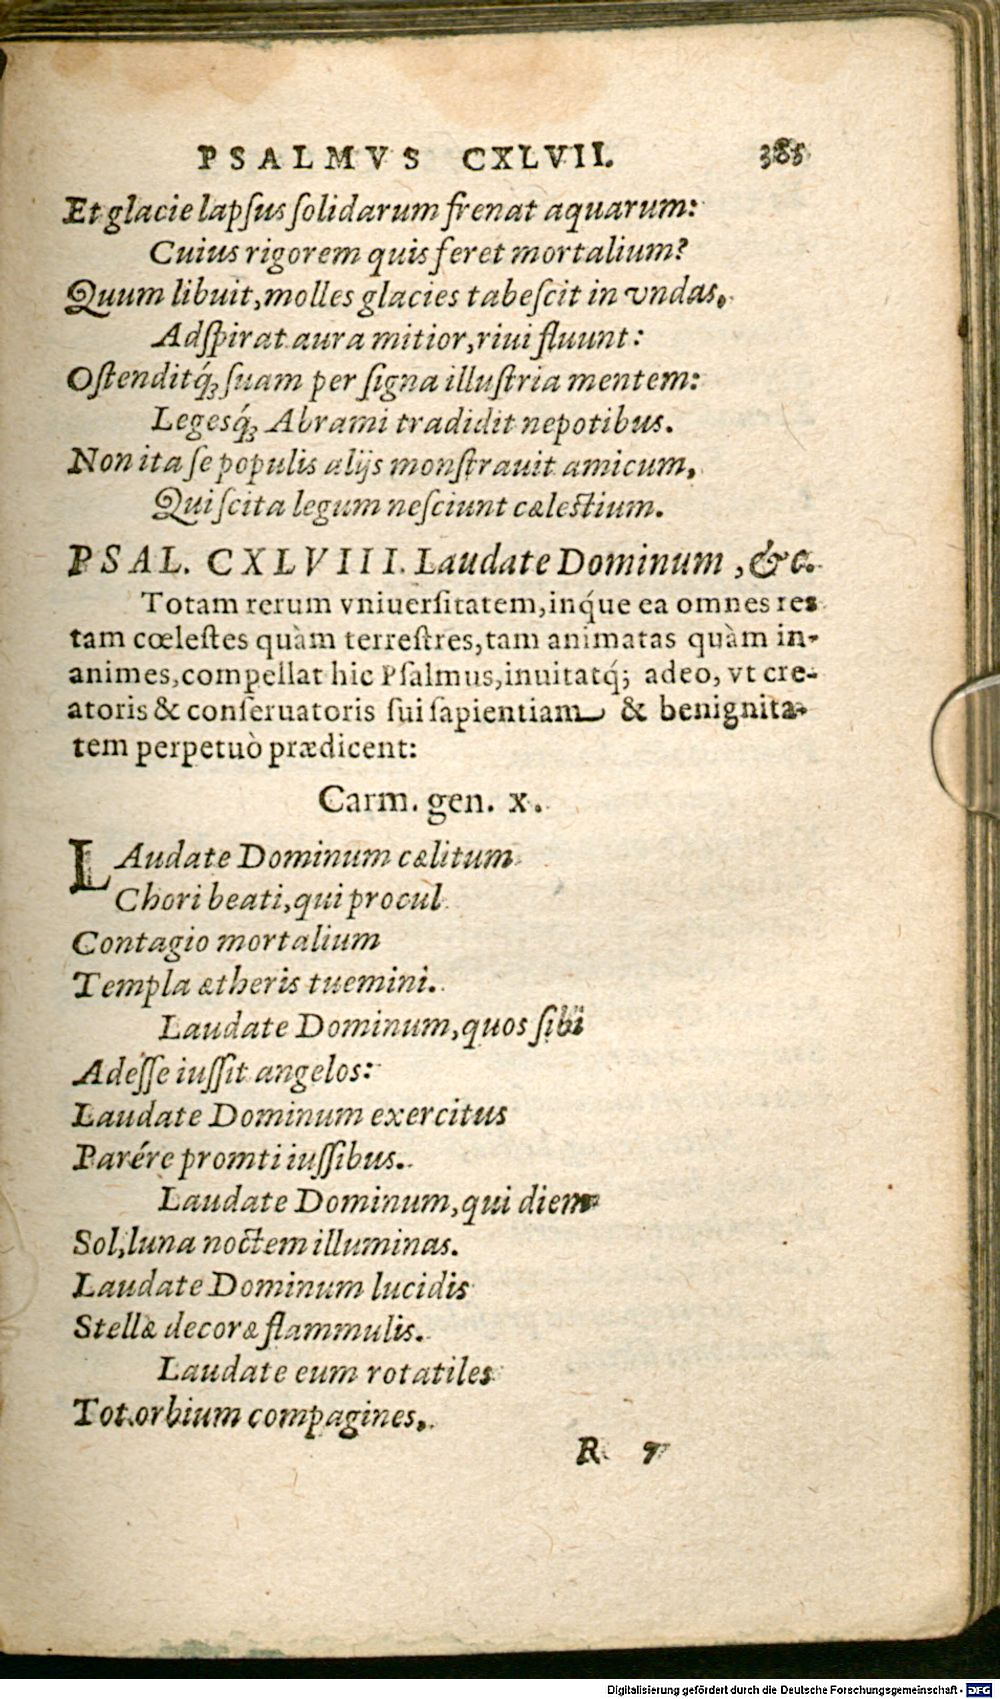 PSALMVS CXLVII. 385
Et glacie lapſus ſolidarum frenat aquarum:
Cuius rigorem quis feret mortalium?
Quum libuit, molles glacies tabeſcit in vndas,
Adſpirat aura mitior, riui fluunt:
Oſtenditq́ꝫ ſuam per ſigna illuſtria mentem:
Legesq́ꝫ Abrami tradidit nepotibus.
Non ita ſe populis alijs monſtrauit amicum,
Qui ſcita legum neſciunt cæleſtium.
PSAL. CXLVIII. Laudate Dominum, &c.
Totam rerum vniuerſitatem, inq́ue ea omnes res
tam cœleſtes quàm terreſtres, tam animatas quàm in-
animes, compellat hic Pſalmus, inuitatq́; adeo, vt cre-
atoris & conſeruatoris ſui ſapientiam & benignita-
tem perpetuò prædicent:
Carm. gen. x.
LAudate Dominum cælitum
Chori beati, qui procul
Contagio mortalium
Templa ætheris tuemini.
Laudate Dominum, quos ſibi
Adeſſe iuſſit angelos:
Laudate Dominum exercitus
Parére promti iuſſibus.
Laudate Dominum, qui diem
Sol, luna noctem illuminas.
Laudate Dominum lucidis
Stellæ decoræ flammulis.
Laudate eum rotatiles
Tot orbium compagines,
R 7
Digitalisierung gefördert durch die Deutsche Forschungsgemeinschaft - DFG